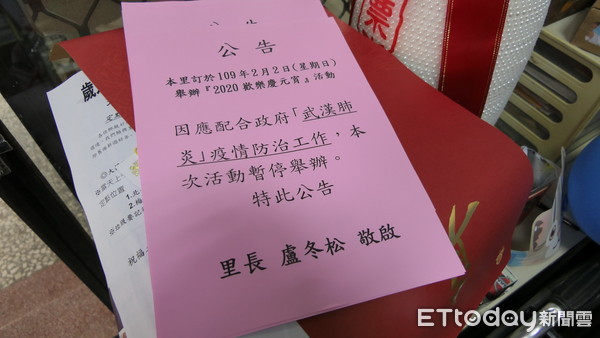 公告
本里訂於109年2月2日(星期日)
舉辦『2020歡樂慶元宵』活動
因應配合政府「武漢肺
炎」疫情防治工作，本
次活動暫停舉辦。
特此公告
里長 盧冬松 敬啟
票
歲
祝福
ETtoday新聞雲